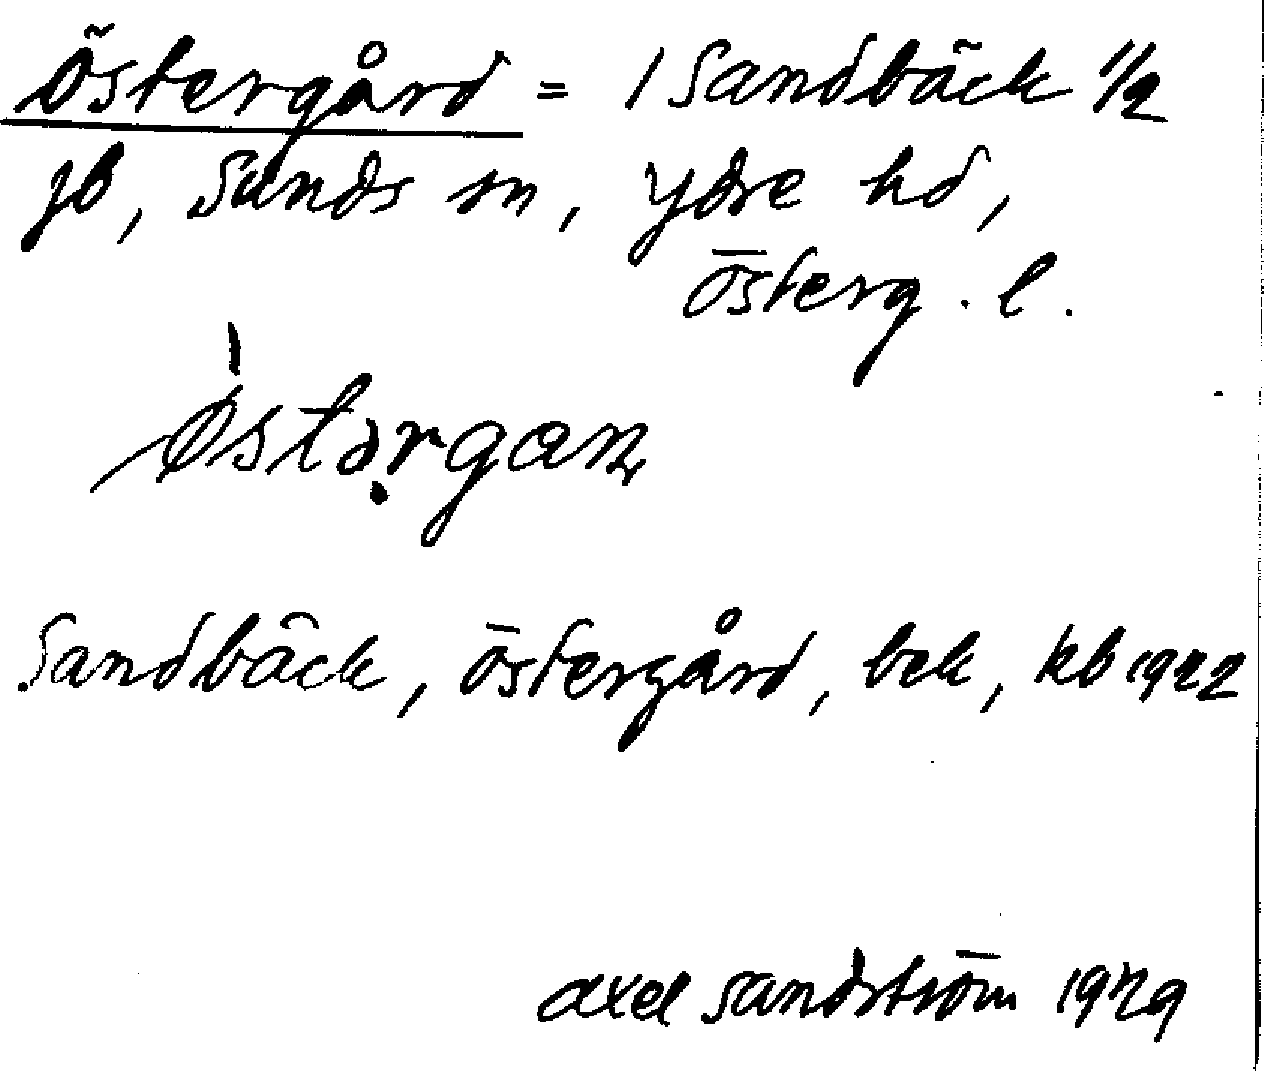 Östergård = / Sandbäck 1/2
jb, Sunds sn, Ydre hd,
Österg. l.
Sandbäck, Östergård, bek, kb 1922
Axel Sandström 1929